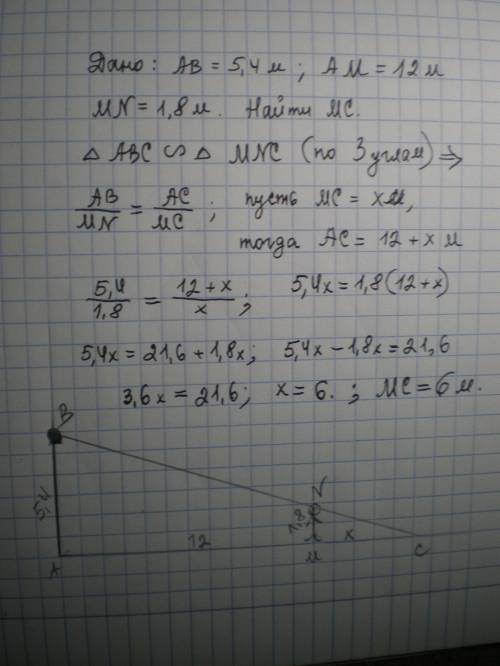 Дано: AB = 5,4 м; AM = 12 м
MN = 1,8 м. Найти MC.
△ ABC ∽ △ MNC (по 3 углам) ⇒
AB/MN = AC/MC; пусть MC = x м,
тогда AC = 12 + x м
5,4/1,8 = (12 + x)/x; 5,4x = 1,8(12 + x)
5,4x = 21,6 + 1,8x; 5,4x − 1,8x = 21,6
3,6x = 21,6; x = 6. ; MC = 6 м.
B
N
5,4
1,8
12
x
A
M
C